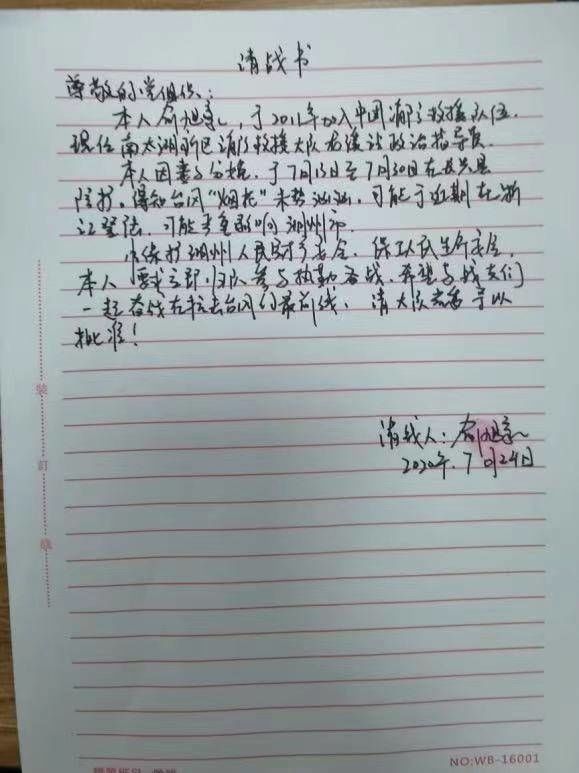 请战书
尊敬的党组织:
本人 于2011年加入中国消防救援队伍.
现任南太湖新区消防救援大队 政治指导员
本人因妻子分娩,于7月15日至7月30日在长兴县
陪护。得知台风"烟花"来势汹汹,可能于近期在浙
江登陆,可能严重影响湖州市
为保护湖州人民财产安全、保卫人民生命安全,
本人要求立即归队参与执勤备战,希望与战友们
一起奋战在抗击台风的最前线,请大队党委予以
批准!
请战人:
2020年.7月24日
装
订
线
NO:WB-16001